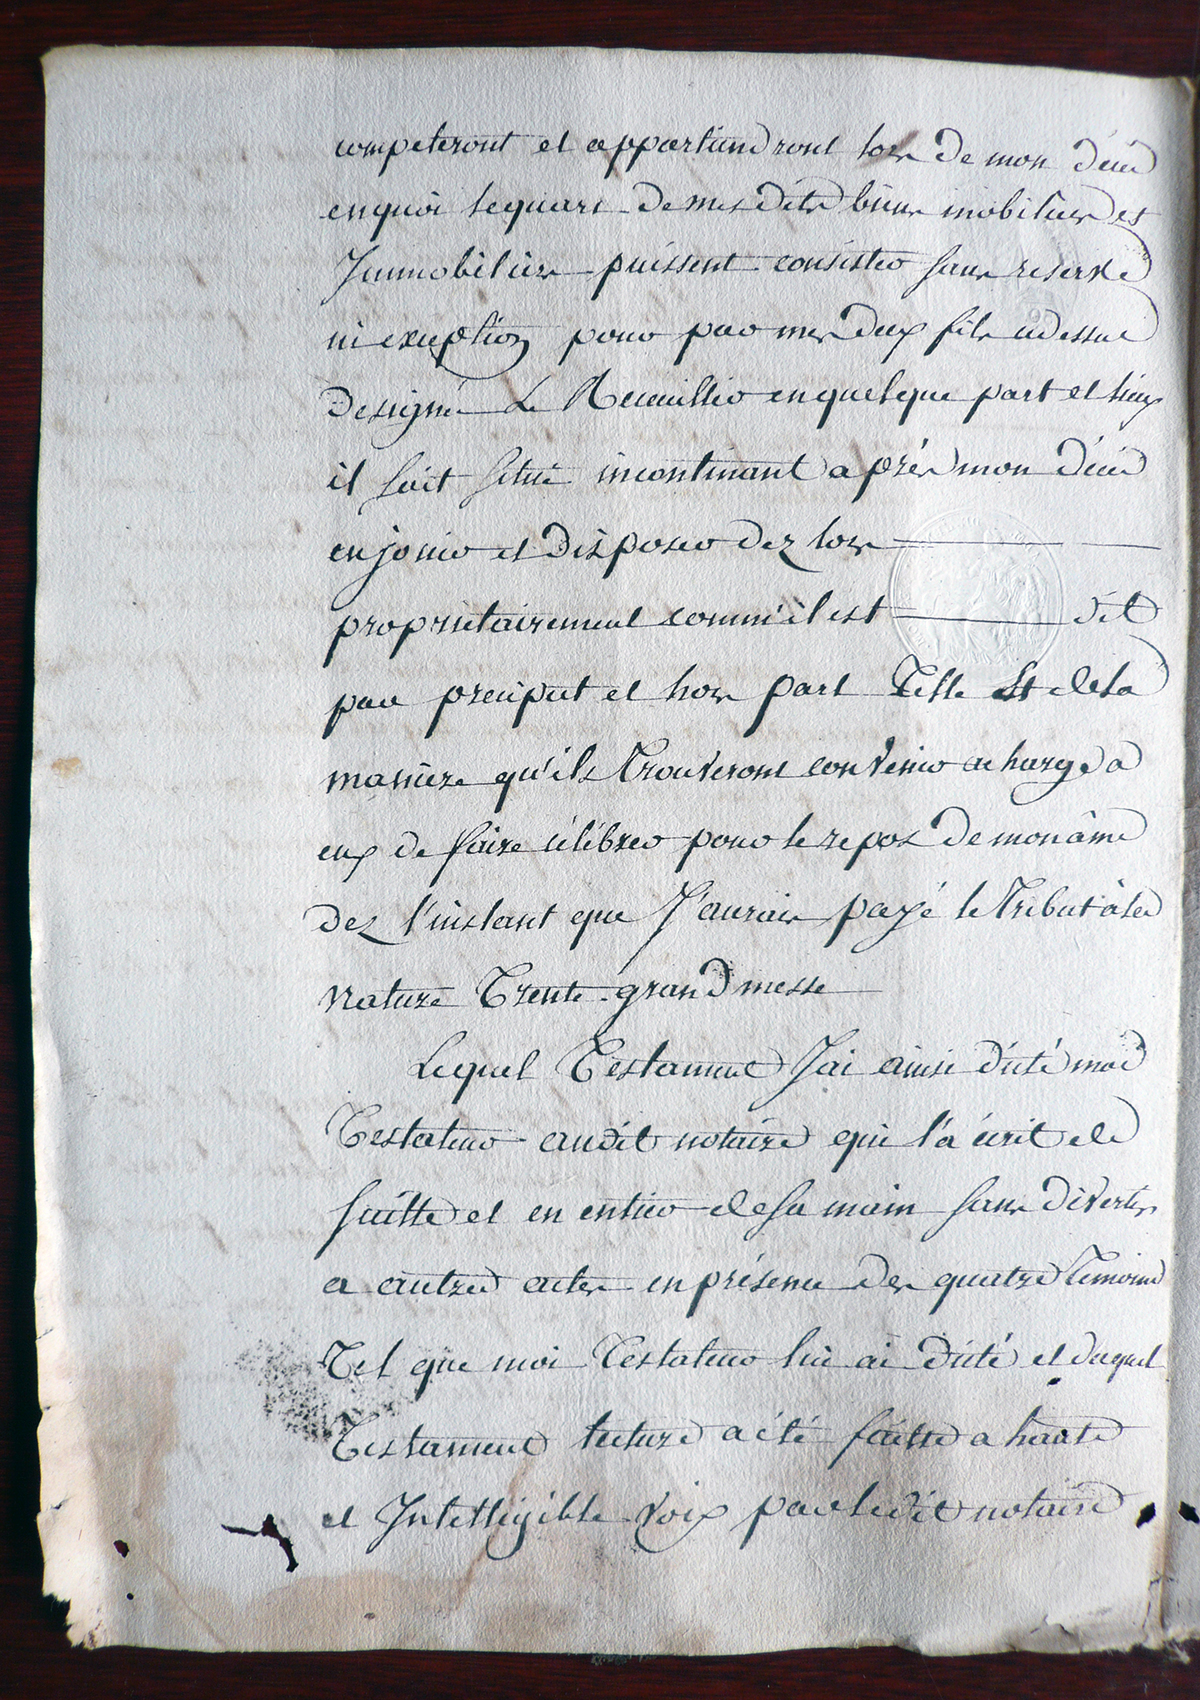 competeront et appartiendront lors de mon décès
enquoi lequart de mes dits biens mobiliers et
Immobiliers puissent consister sans reserve
ni exception pour par mes deux fils cidessus
designés Le Recueillir enquelque part et lieux
il soit situé incontinant après mon décès
enjouir et disposer dez lors
proprietairement comm'il est dit
par preciput et hors part telle et dela
maniere qu'ils trouveront convenir acharge a
eux de faire célébrer pour le repos de mon âme
dez l'instant que J'aurais payé le tribut à la
nature Trente grand messe
Lequel Testament J'ai ainsi dicté moi
Testateur audit notaire qui l'a écrit de
suitte et en entier de sa main sans divertir
a autres actes en présence des quatre témoins
Tel que moi Testateur lui ai dicté et duquel
Testament lecture a été faitte a haute
et Intelligible voix par ledit notaire